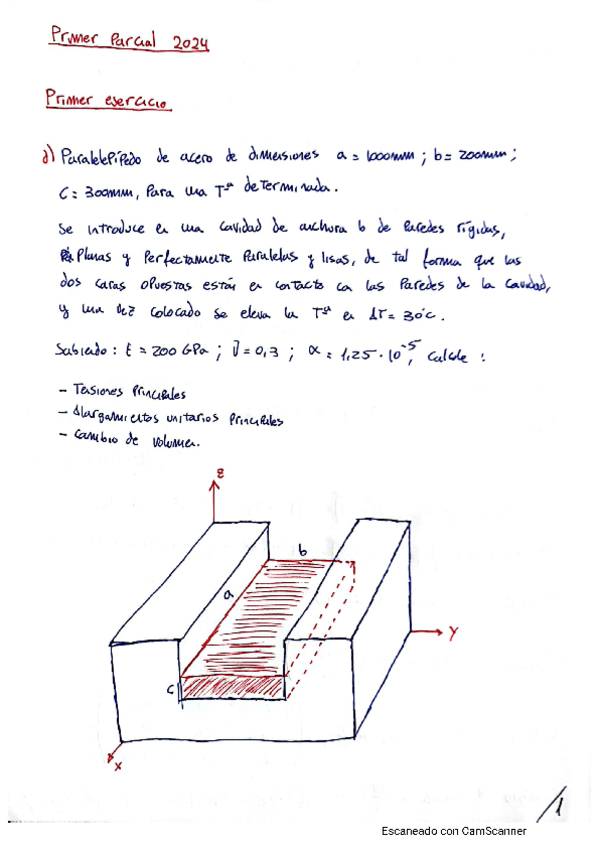 Primer Parcial 2024
Primer ejercicio
a) Paralelepípedo de acero de dimensiones a = 1000mm ; b = 200mm ;
C = 300mm, Para una Tª determinada.
Se introduce en una cavidad de anchura b de Paredes rígidas,
Planas y Perfectamente Paralelas y lisas, de tal forma que las
dos caras opuestas están en contacto con las Paredes de la cavidad,
y una vez colocado se eleva la Tª en ΔT = 30°C.
Sabiendo : E = 200 GPa ; ν = 0,3 ; α = 1,25 · 10⁻⁵, Calcule :
- Tensiones Principales
- Alargamientos unitarios Principales
- Cambio de Volumen.
z
b
a
Y
C
X
1
Escaneado con CamScanner